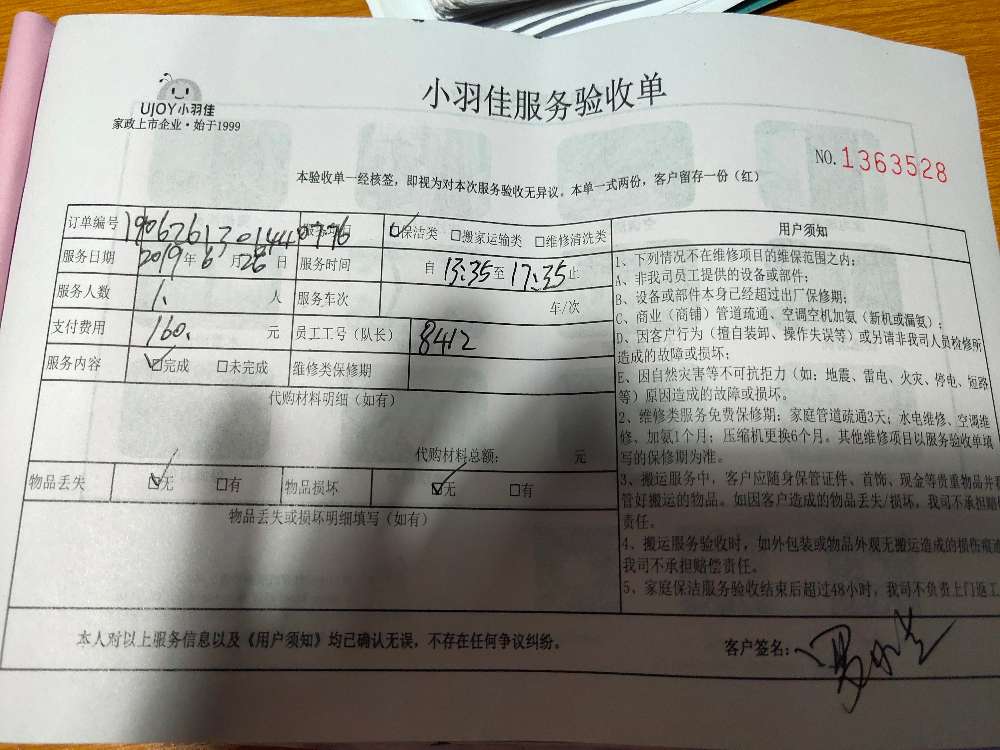 UJOY小羽佳
家政上市企业·始于1999
小羽佳服务验收单
NO.1363528
本验收单一经核签，即视为对本次服务验收无异议。本单一式两份，客户留存一份（红）
订单编号 1906261301440796 ☑保洁类 □搬家运输类 □维修清洗类
服务日期 2019年6月28日 服务时间 自 13:35至17:35止
服务人数 1. 人 服务车次 车/次
支付费用 160. 元 员工工号（队长） 8412
服务内容 ☑完成 □未完成 维修类保修期
代购材料明细（如有）
代购材料总额： 元
物品丢失 ☑无 □有 物品损坏 ☑无 □有
物品丢失或损坏明细填写（如有）
用户须知
1、下列情况不在维修项目的维保范围之内：
A、非我司员工提供的设备或部件；
B、设备或部件本身已经超过出厂保修期；
C、商业（商铺）管道疏通、空调空机加氨（新机或漏氨）；
D、因客户行为（擅自装卸、操作失误等）或另请非我司人员检修所
造成的故障或损坏；
E、因自然灾害等不可抗拒力（如：地震、雷电、火灾、停电、短路
等）原因造成的故障或损坏。
2、维修类服务免费保修期：家庭管道疏通3天；水电维修、空调维
修、加氨1个月；压缩机更换6个月。其他维修项目以服务验收单填
写的保修期为准。
3、搬运服务中，客户应随身保管证件、首饰、现金等贵重物品并
管好搬运的物品。如因客户造成的物品丢失/损坏，我司不承担赔
责任。
4、搬运服务验收时，如外包装或物品外观无搬运造成的损伤痕
我司不承担赔偿责任。
5、家庭保洁服务验收结束后超过48小时，我司不负责上门返工
本人对以上服务信息以及《用户须知》均已确认无误，不存在任何争议纠纷。
客户签名：